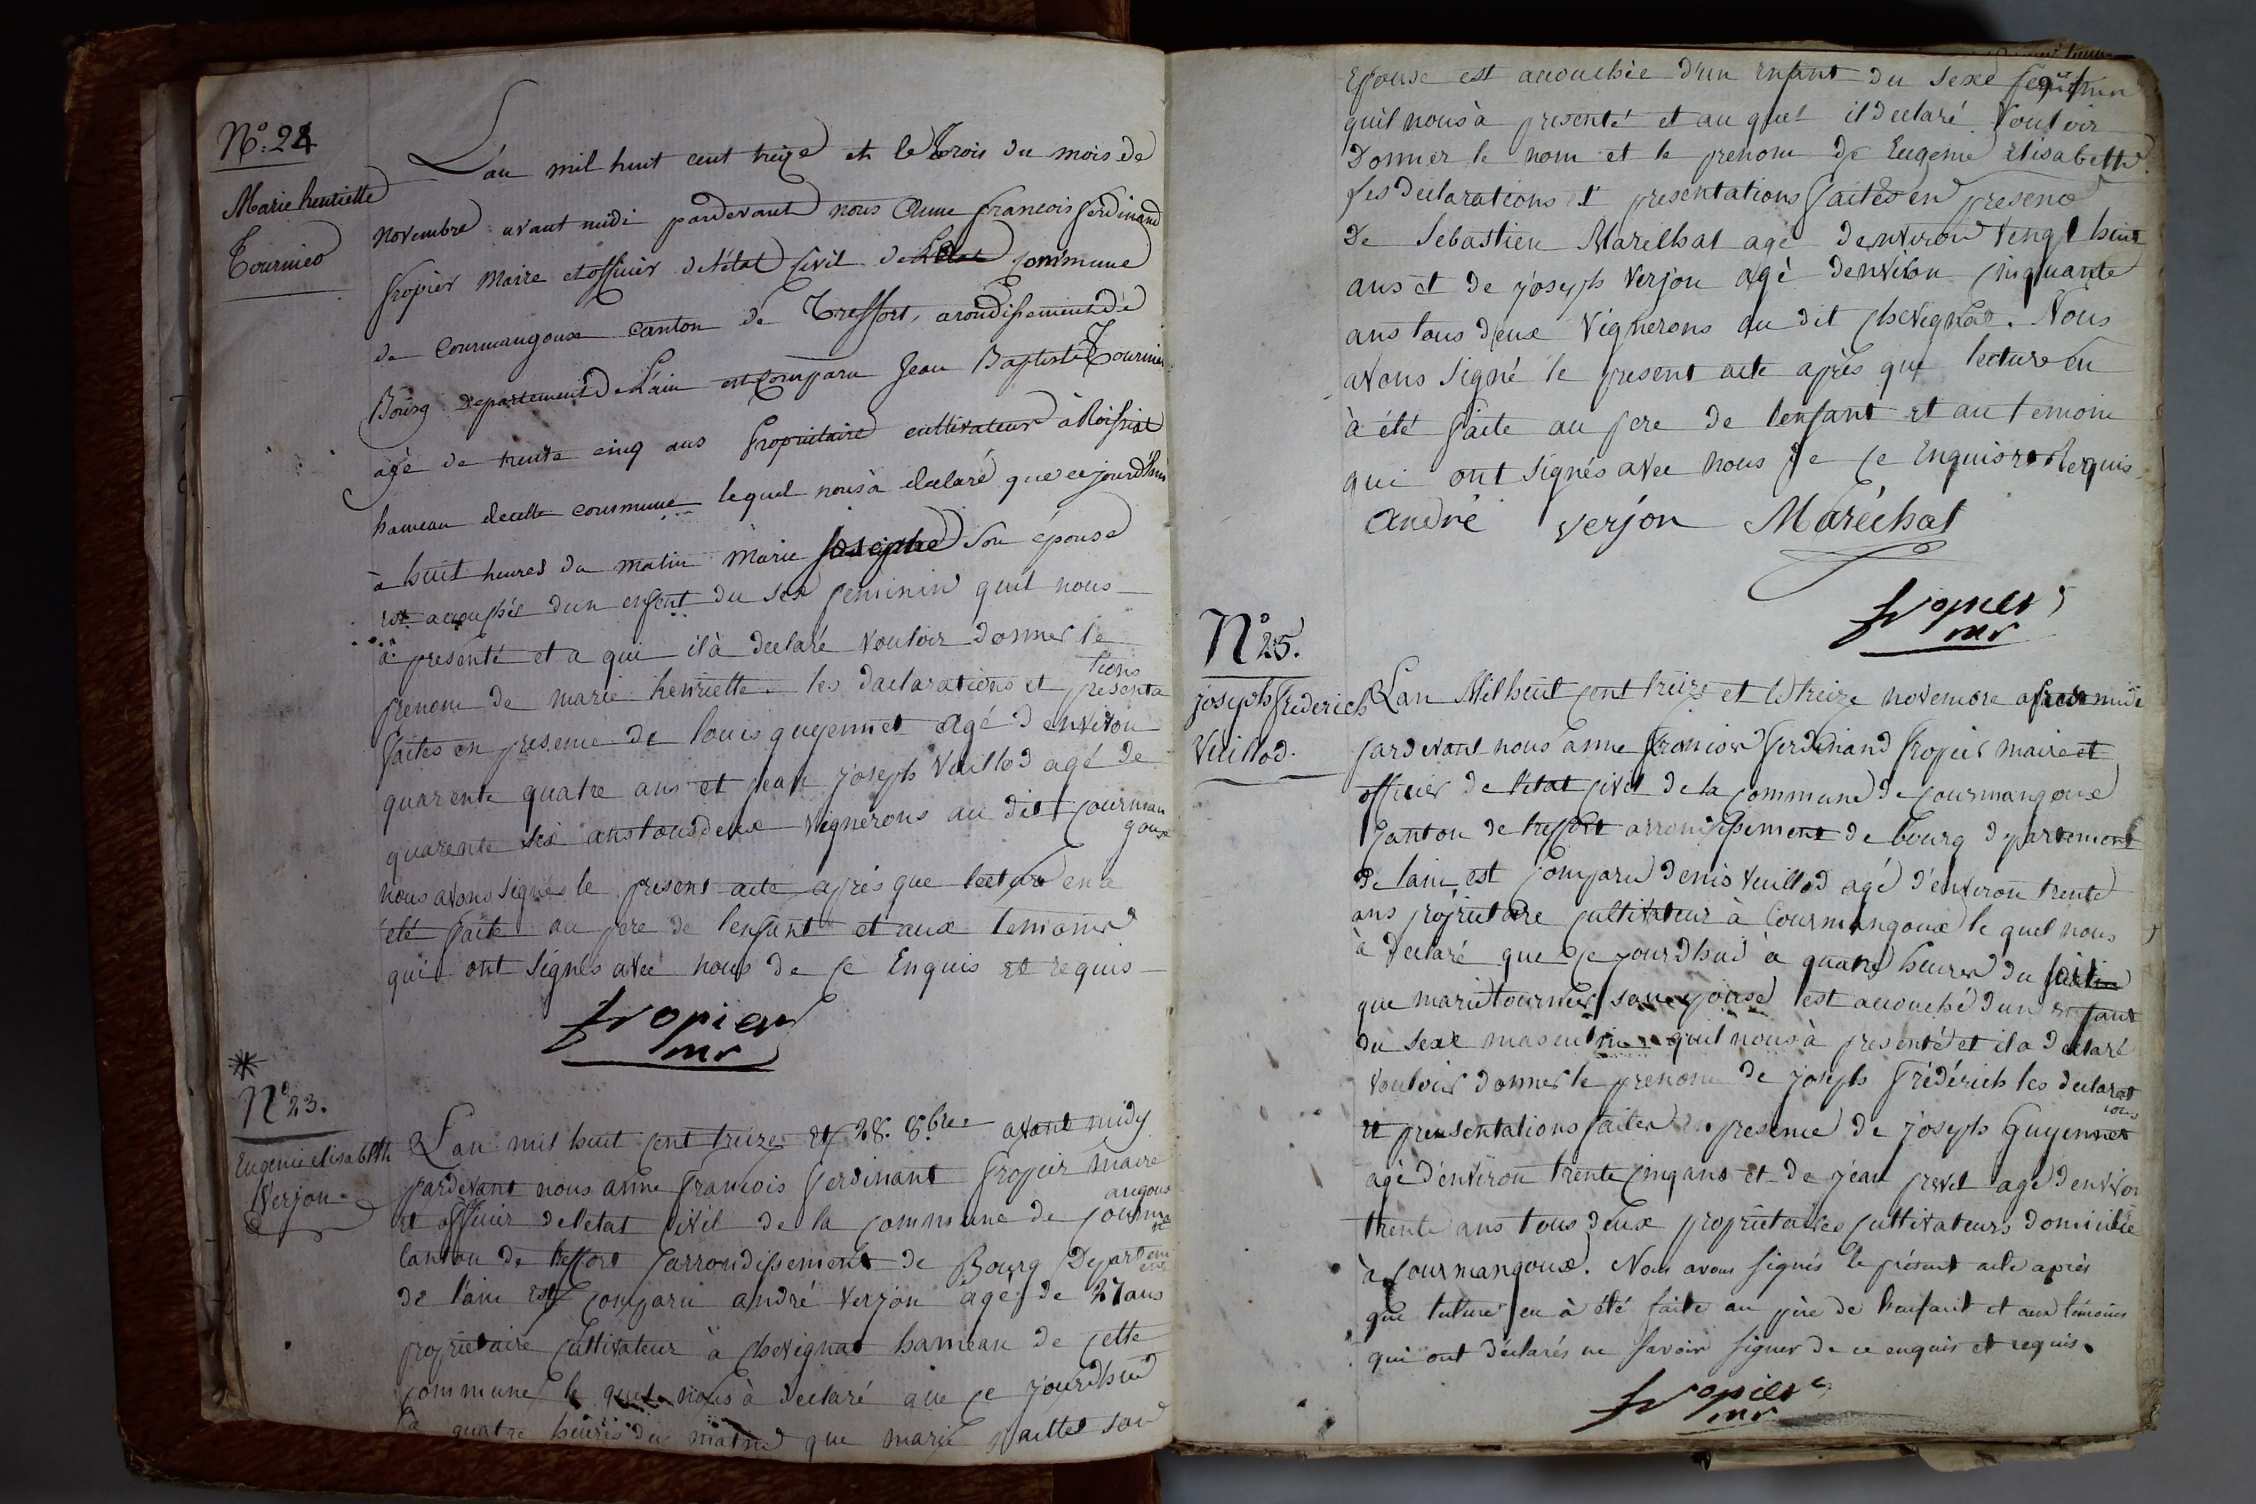 N°. 24
Marie henriette
Tournier
L'an mil huit cent treize et le trois du mois de
novembre avant midi pardevant nous Anne françois ferdinand
fropier Maire et officier de l'état civil de commune
de Courmangoux canton de Treffort, arondissement de
Bourg departement de L'ain est comparu Jean Baptiste Tournier
agé de trente cinq ans propriétaire cultivateur à Roissiat
hameau de cette commune lequel nous à déclaré que cejourd'hui
à huit heures du matin Marie josephe son épouse
est accouchée d'un enfent du sex feminin quil nous
à presenté et a qui il à declaré vouloir donner le
prenom de marie henriette. les daclarations et presenta
tions
faites en presence de louis guyennet agé d'environ
quarente quatre ans et jean joseph Vuillod agé de
quarente six ans tous deux vignerons au dit courman
goux
nous avons signés le present acte après que lecture en a
été faite au pere de l'enfant et aux temoins
qui ont signés avec nous de ce Enquis et requis
fropier
mr
*
N° 23.
Eugenie elisabeth
Verjon
Lan mil huit cent treize et 28. 8.bre avant midy
pardevant nous anne françois ferdinant fropier maire
et officier de l'etat civil de la commune de courma
angoux
canton de treffort l'arrondissement de Bourg Departem
ent
de l'ain est comparu andré verjon agé de 27 ans
proprietaire cultivateur à chevignat hameau de cette
commune le quel nous à declaré que ce jourd'hui
à quatre heures du matin que marie son
Epouse est accouchée d'un Enfant du sexe feminin
quil nous à presenté et au quel il declaré vouloir
Donner le nom et le prenom de Eugenie Elisabette
les declarations et presentations faites en presence
de Sebastien Marelhat agé denviron vengt huit
ans et de joseph verjon agé denviron cinquante
ans tous deux vignerons au dit chevignat. Nous
avons signé le present acte après que lecture en
à été faite au pere de l'enfant et au temoin
qui ont signés avec nous de ce Enquis et Requis
André verjon Maréchal
fropier
mr
N° 25.
joseph frederich
Vuillod.
Lan Mil huit cent treize et le treize novembre apres midi
pardevant nous anne francois ferdinand fropier maire et
officier de l'etat civil de la commune de courmangoux
canton de treffort arrondissement de bourg departement
de l'ain est comparu denis vuillod agé d'environ trente
ans proprietaire cultivateur à Courmangoux le quel nous
à declaré que ce jourdhui à quatre heures du
que marie tournier son epouse est accouché d'un enfant
du sexe masculin quil nous à presenté et il a declaré
vouloir donner le prenom de joseph frédérich les declarat
ions
et presentations faites en presence de joseph Guyennet
agé d'environ trente cinq ans et de jean pevet agé d'environ
trente ans tous deux proprietaires cultivateurs domicilié
à courmangoux. Nous avons signés le présent acte après
que lecture en à été faite au père de l'enfant et aux témoins
qui ont déclarés ne savoir signer de ce enquis et requis.
fropier
mr